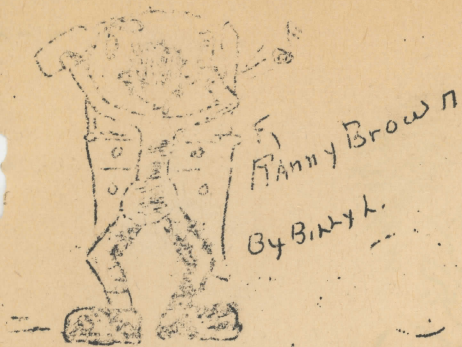 RAnny Brown
By Billy L.